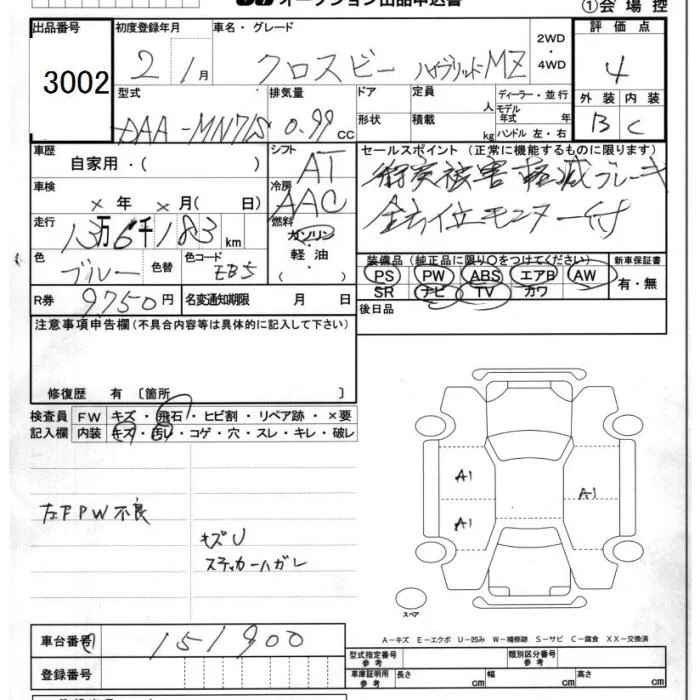 オークション出品申込書
①会場控
出品番号 初度登録年月 車名・グレード 2WD・4WD 評価点
3002 2 / 1月 クロスビー ハイブリットMZ 4
型式 排気量 ドア 定員 人 ディーラー・並行 外装 内装
DAA-MN71S 0.99CC 形状 積載 kg モデル年式 年 ハンドル 左・右 B C
車歴 自家用・( ) シフト AT セールスポイント(正常に機能するものに限ります)
衝突被害軽減ブレーキ
全方位モニター付
車検 × 年 × 月( 日) 冷房 AAC
走行 13万6千183km 燃料 ガソリン・軽油・( )
色 ブルー 色替 色コード EB5
装備品(純正品に限り○をつけてください) 新車保証書
PS PW ABS エアB AW 有・無
SR ナビ TV カワ
R券 9750円 名変通知期限 月 日 後日品
注意事項申告欄(不具合内容等は具体的に記入して下さい)
修復歴 有 〔箇所 〕
検査員 FW キズ・飛石・ヒビ割・リペア跡・×要
記入欄 内装 キズ・汚レ・コゲ・穴・スレ・キレ・破レ
A1
A1
A1
左FPW不良
キズU
ステッカーハガレ
スペア
A−キズ E−エクボ U−凹み W−補修跡 S−サビ C−腐食 XX−交換済
車台番号 (7) 151900
型式指定番号 参考 類別区分番号 参考
登録番号 車庫証明用 参考 長さ cm 幅 cm 高さ cm